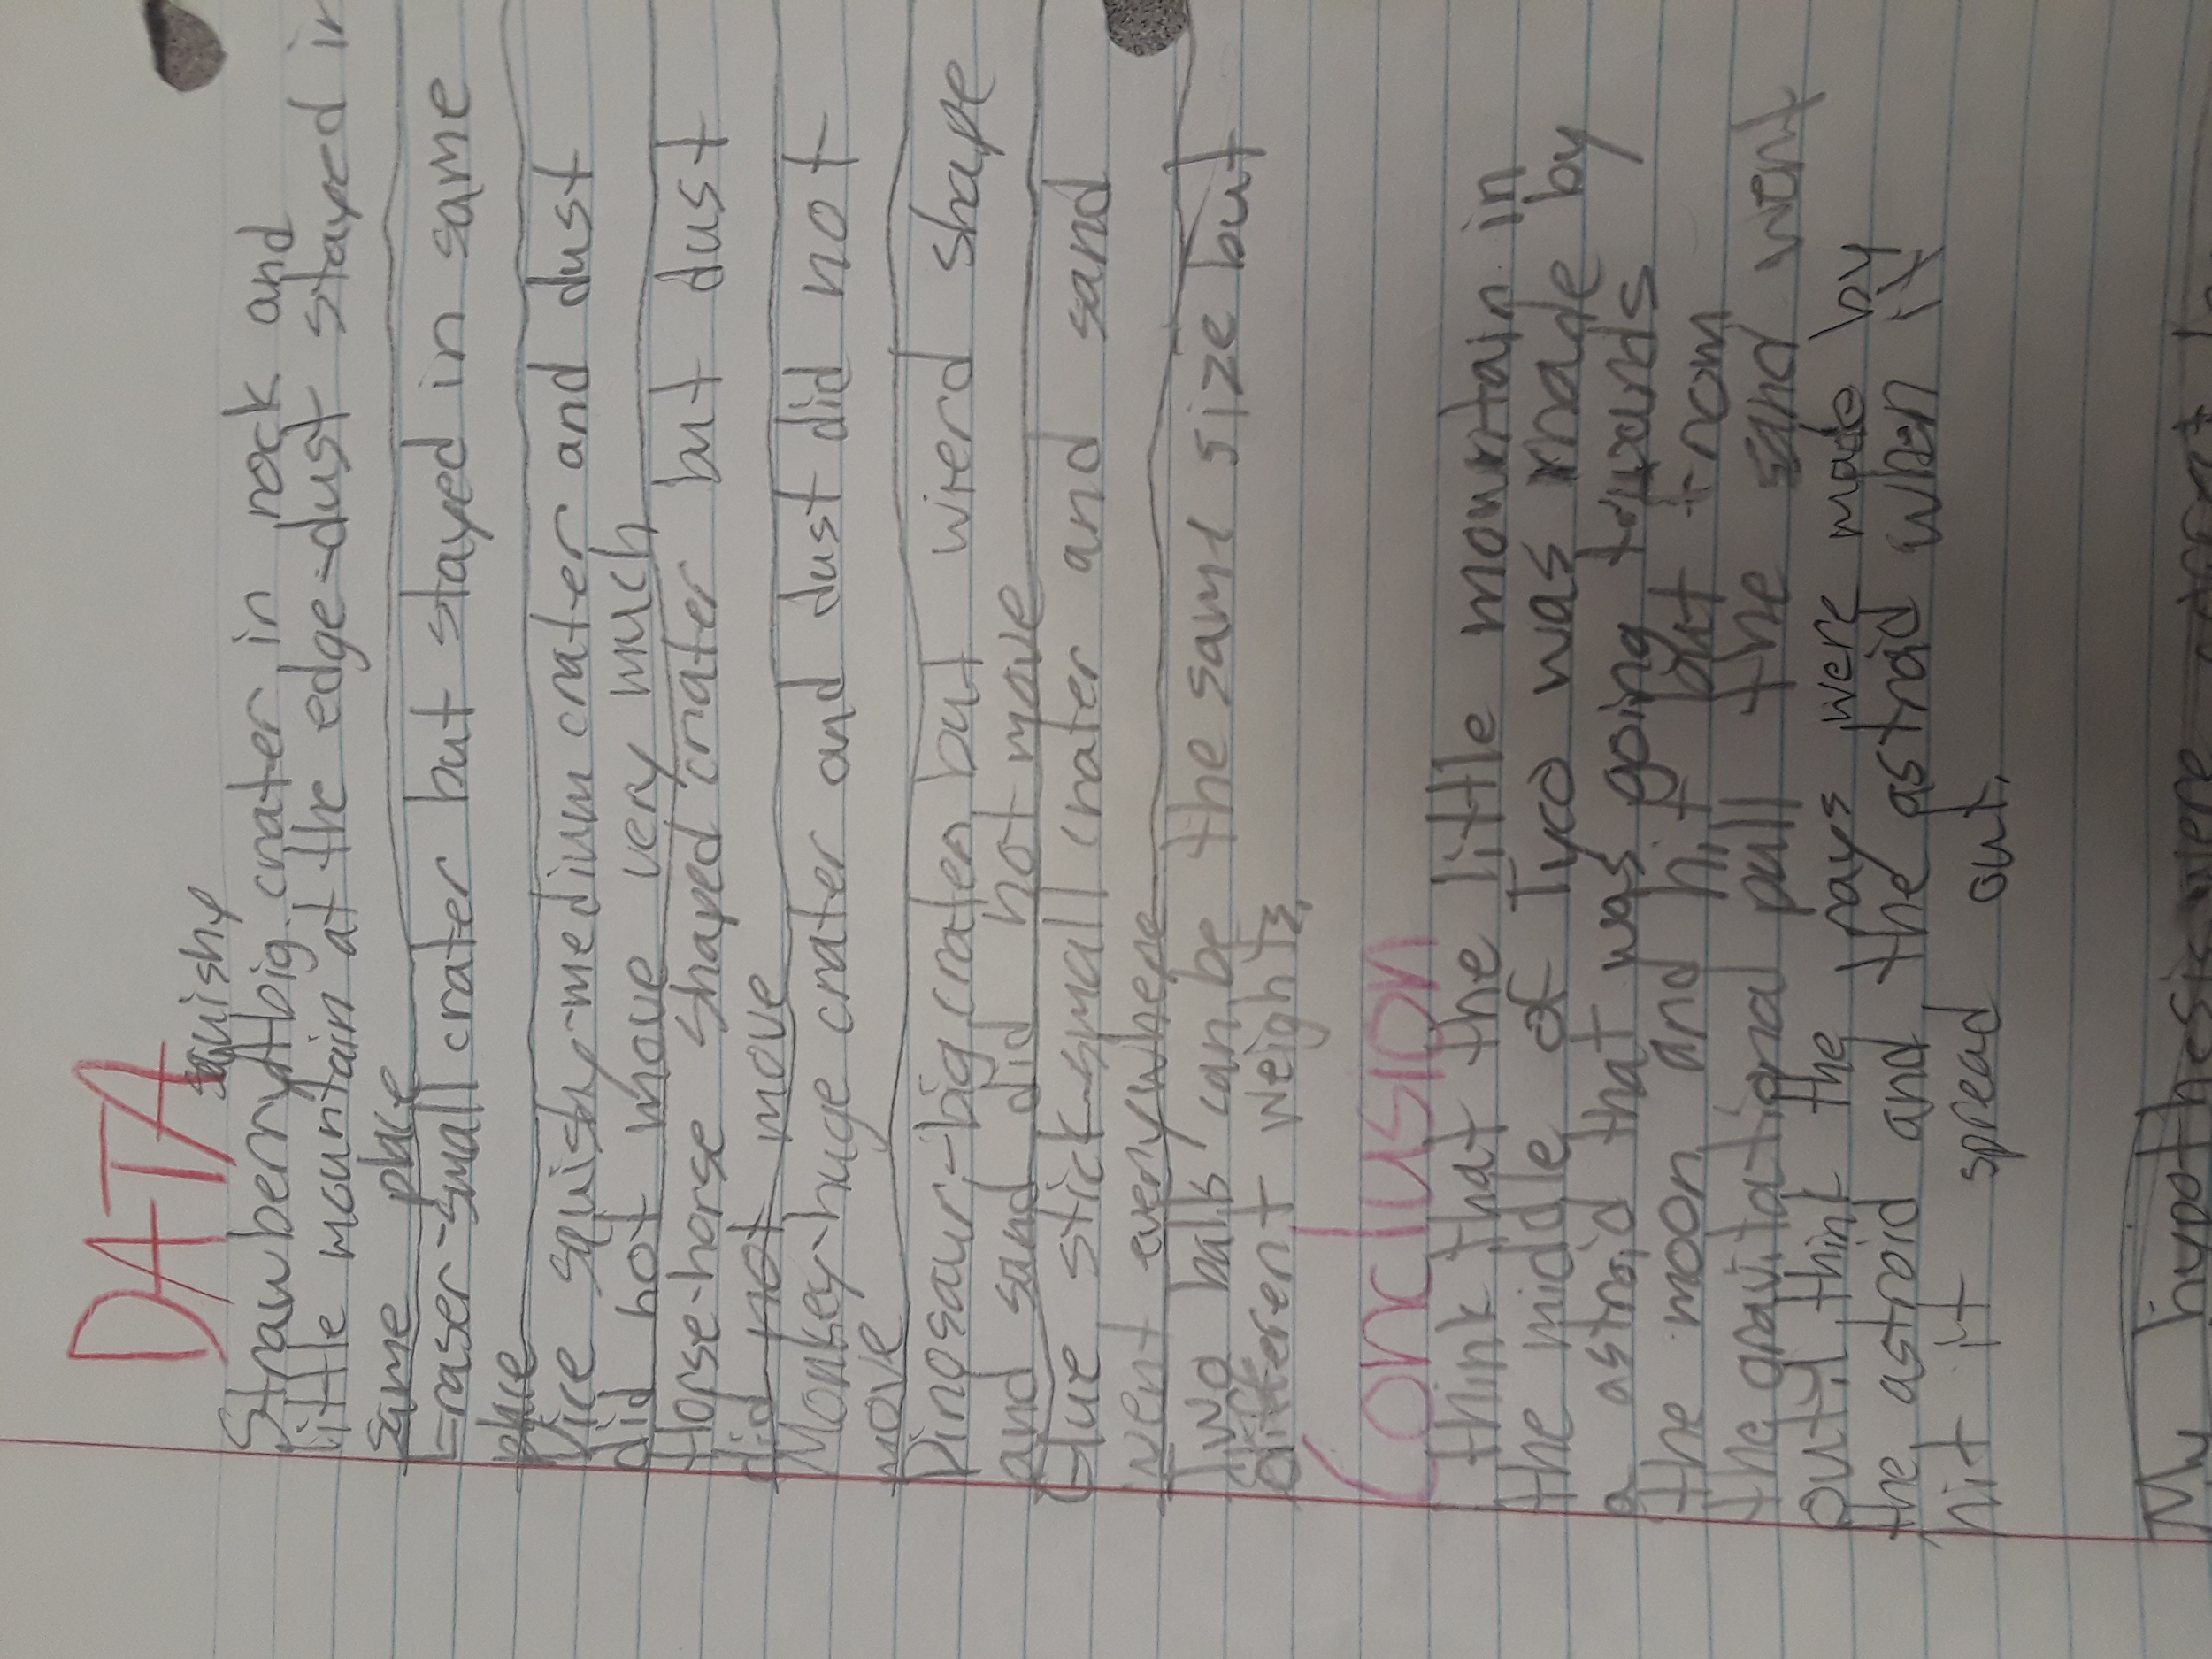 DATA
squishy
Strawberry-big crater in rock and
little mountain at the edge-dust stayed in
same place
Eraser-small crater but stayed in same
place
Dice squishy-medium crater and dust
did not move very much
Horse-horse shaped crater but dust
did not move
Monkey-huge crater and dust did not
move
Dinosaur-big crater but wierd shape
and sand did not move
Glue stick-small crater and sand
went everywhere
Two balls can be the same size but
different weights.
Conclusion
I think that the little mountain in
the middle of Tyco was made by
a astroid that was going towards
the moon and hit but from
the gravitational pull the sand went
out. I think the rays were made by
the astroid and the astroid when it
hit it spread out.
My hypothesis were